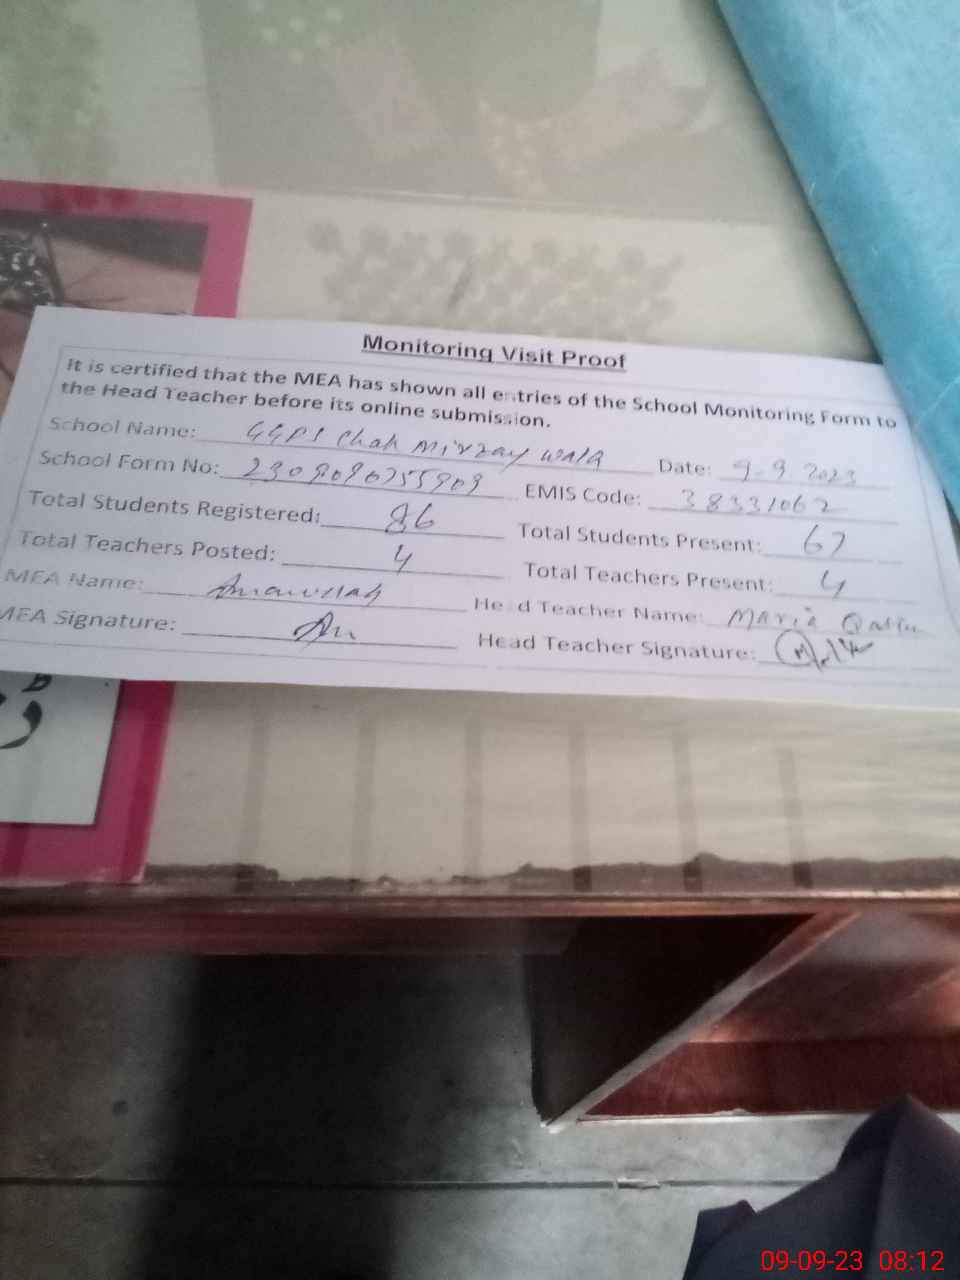 Monitoring Visit Proof
It is certified that the MEA has shown all entries of the School Monitoring Form to
the Head Teacher before its online submission.
School Name: GGPS Chak Mirzay Wala Date: 9-9-2023
School Form No: EMIS Code: 38331062
Total Students Registered: 86 Total Students Present: 67
Total Teachers Posted: 4 Total Teachers Present: 4
MEA Name: Amanullah Head Teacher Name: Maria
MEA Signature: Head Teacher Signature:
09-09-23 08:12